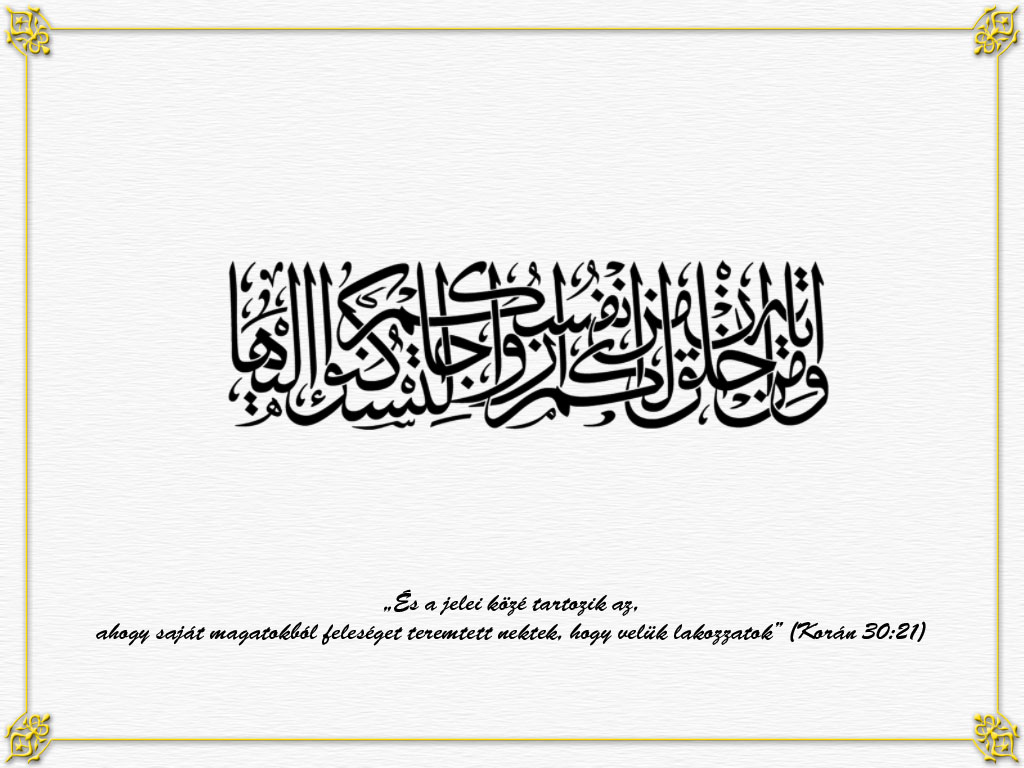 ومن آياته أن خلق لكم من أنفسكم أزواجا لتسكنوا إليها
„És a jelei közé tartozik az,
ahogy saját magatokból feleséget teremtett nektek, hogy velük lakozzatok” (Korán 30:21)